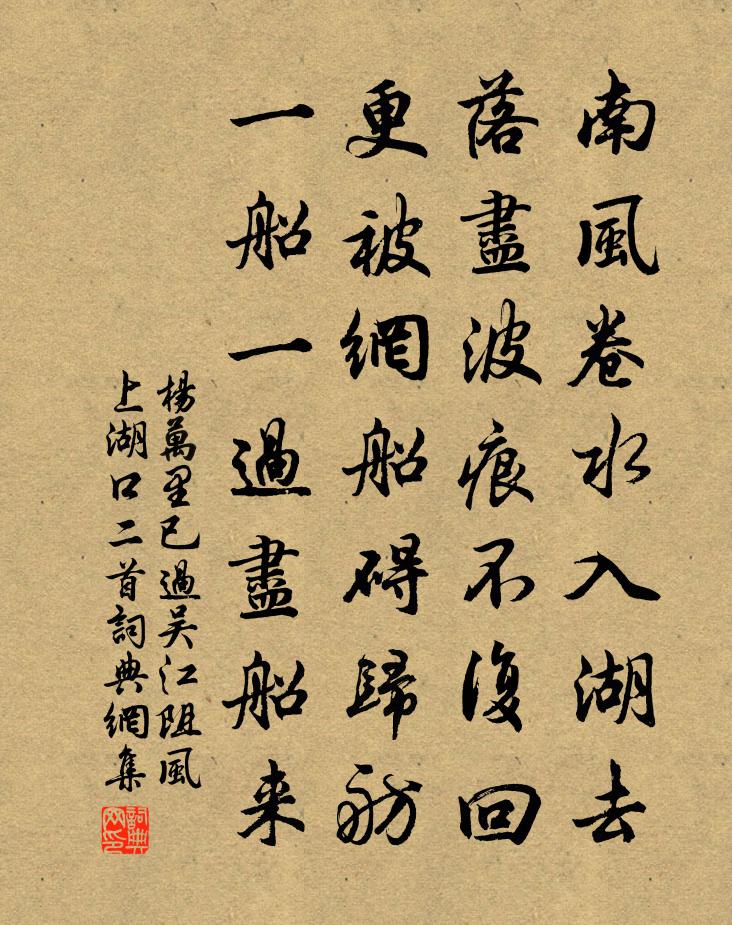 南風卷水入湖去
落盡波痕不復回
更被網船碍歸舫
一船一過盡船来
楊萬里已過吴江阻風
上湖口二首詞典網集
詞典网印